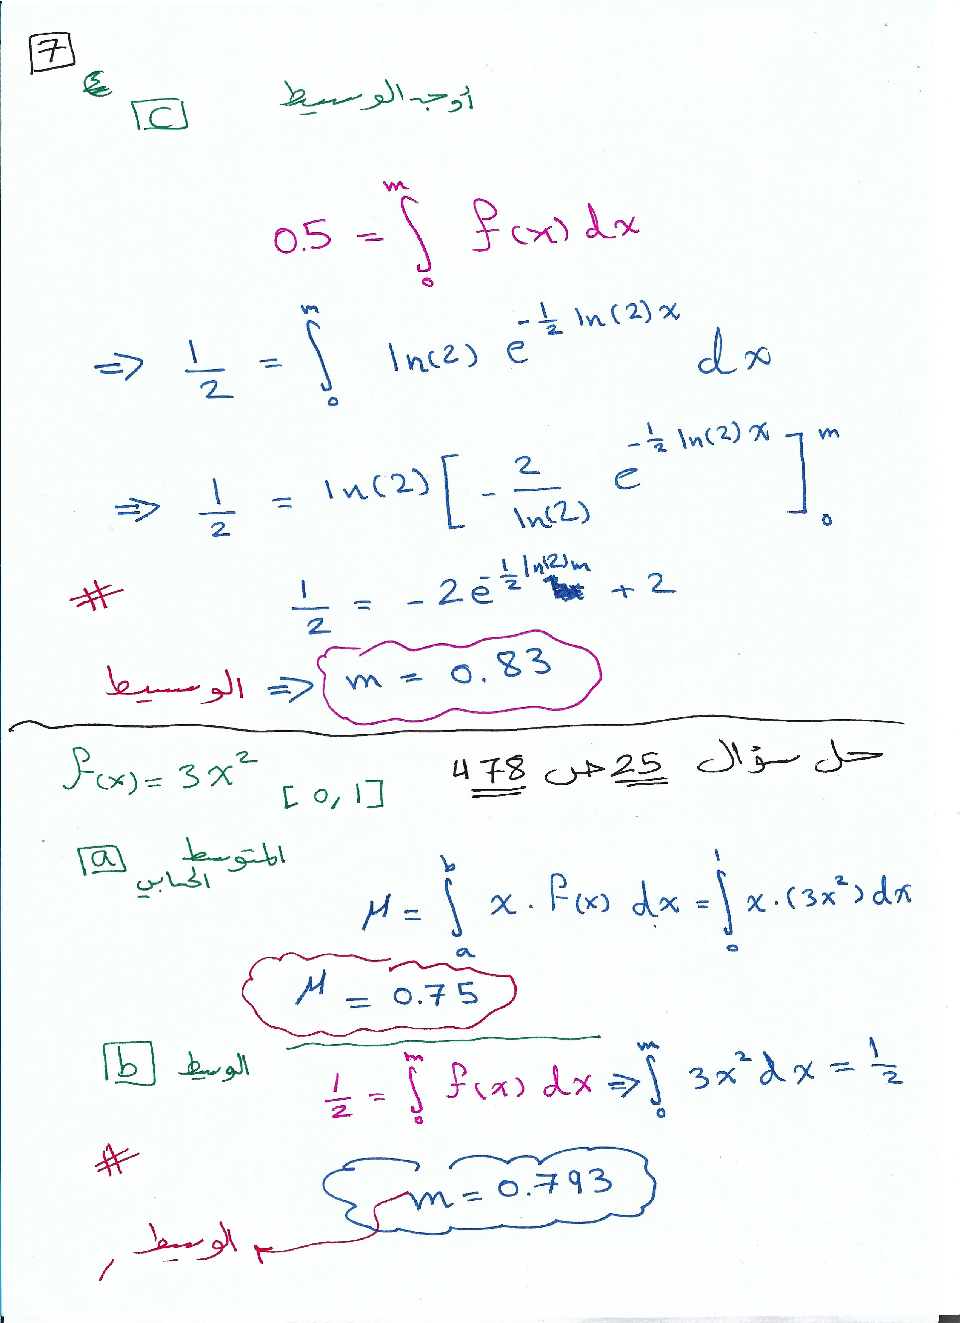 7
C أوجد الوسيط
0.5 = ∫₀ᵐ f(x) dx
⇒ 1/2 = ∫₀ᵐ ln(2) e^(-1/2 ln(2) x) dx
⇒ 1/2 = ln(2) [ - 2/ln(2) e^(-1/2 ln(2) x) ]₀ᵐ
# 1/2 = - 2 e^(-1/2 ln(2) m) + 2
الوسيط ⇒ m = 0.83
حل سؤال 25 ص 478
f(x) = 3x² [0, 1]
a المتوسط الحسابي
μ = ∫ₐᵇ x . f(x) dx = ∫₀¹ x . (3x²) dx
μ = 0.75
b الوسيط
1/2 = ∫₀ᵐ f(x) dx ⇒ ∫₀ᵐ 3x² dx = 1/2
# m = 0.793
الوسيط